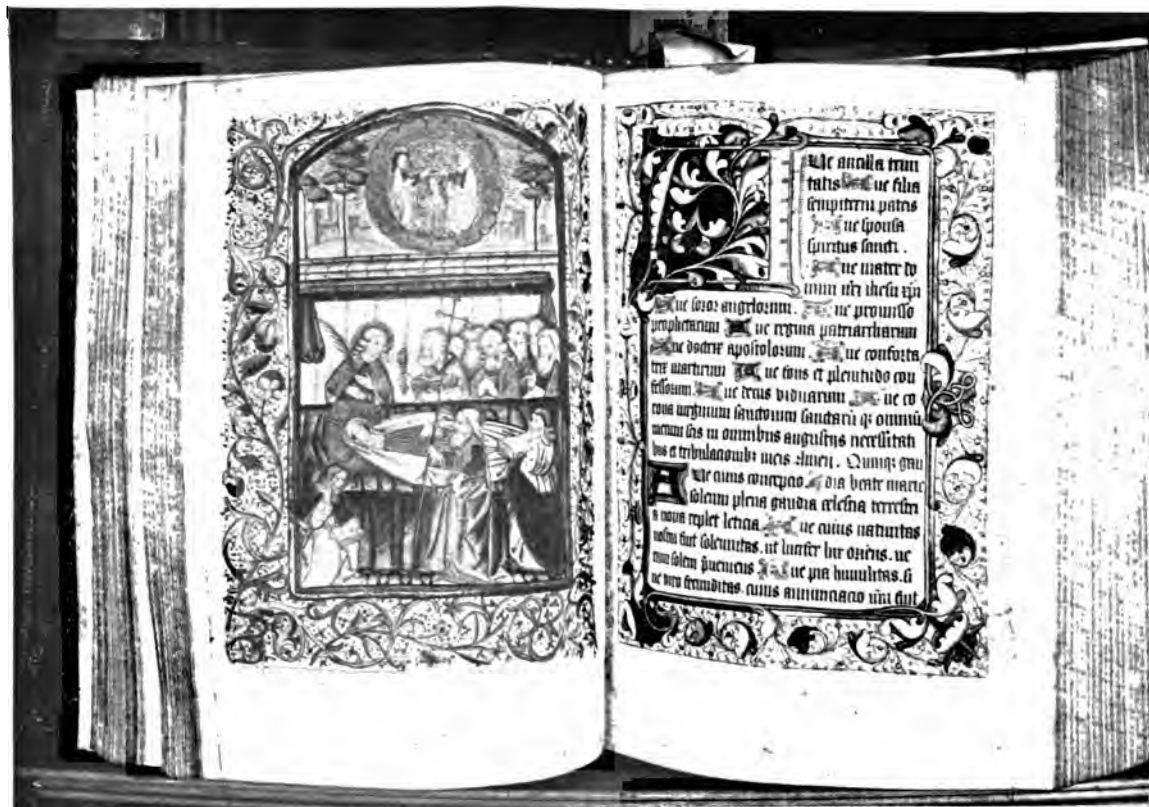 Ue ancilla trini
tatis Aue filia
sempiterni patris
Aue sponsa
spiritus sancti .
Aue mater do
mini nr̄i ihesu xp̄i
Aue soror angelorum . Aue promissio
prophetarum Aue regina patriarcharum
Aue doctrix apostolorum . Aue conforta
trix martirum Aue fons et plenitudo con
fessorum . Aue decus viduarum Aue co
rona virginum sanctorum sanctarū qȝ omniū
mecum sis in omnibus angustijs necessitati
bus et tribulacionibȝ meis Amen . Quinqȝ gau
Aue cuius concepcio dia beate marie
solemni plena gaudia celestia terrestri
a noua replet leticia Aue cuius natiuitas
nostra fuit solennitas . ut lucifer lux oriens . ue
rum solem p̄ueniens Aue pia humilitas . si
ne viro fecunditas . cuius annunciacio nr̄a fuit